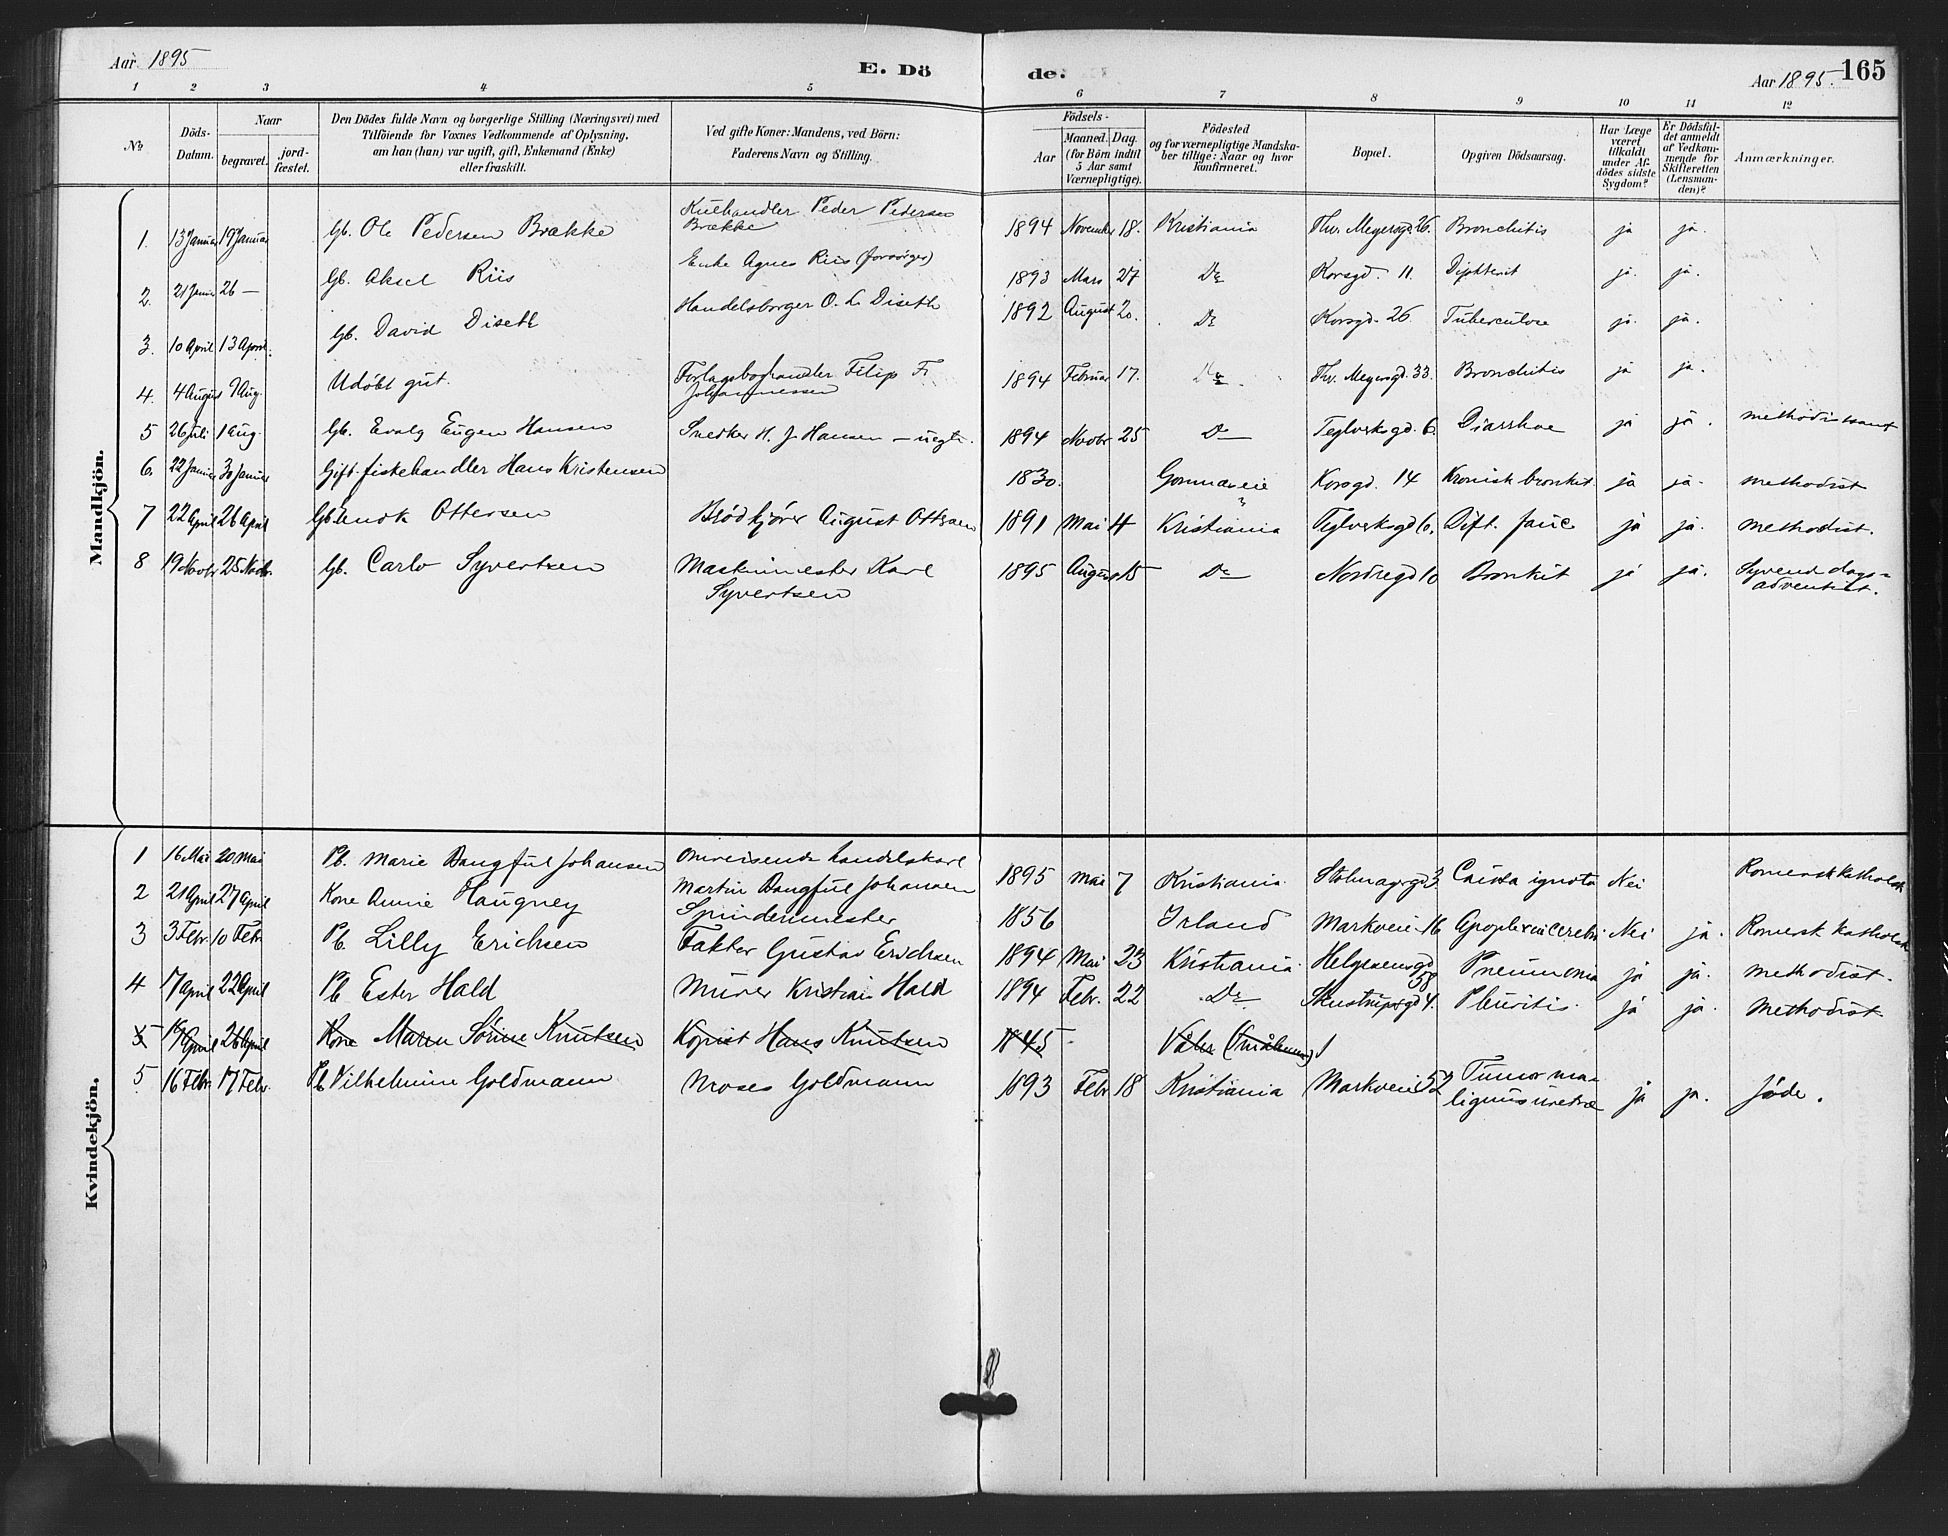 Aar 1895
E. Dö de.
Aar 1895. 165
1 2 3 4 5 6 7 8 9 10 11 12
No
Döds-Datum.
Naar
begravet.
jord-fæstet.
Den Dödes fulde Navn og borgerlige Stilling (Næringsvei) med
Tilföiende for Voxnes Vedkommende af Oplysning,
om han (hun) var ugift, gift, Enkemand (Enke)
eller fraskilt.
Ved gifte Koner: Mandens, ved Börn:
Faderens Navn og Stilling.
Födsels-
Aar
Maaned. Dag.
(for Börn indtil
5 Aar samt
Værnepligtige).
Födested
og for værnepligtige Mandska-
ber tillige: Naar og hvor
konfirmeret.
Bopæl.
Opgiven Dödsaarsag.
Har Læge
været
tilkaldt
under Af-
dödes sidste
Sygdom?
Er Dödsfal-
det anmeldt
af Vedkom-
mende for
Skifteretten
(Lensman-
den)?
Anmærkninger.
Mandkjön.
1. 13 Januar 19 Januar Gb. Ole Pedersen Brække Kulhandler Peder Pedersen Brække 1894 November 18. Kristiania Thv. Meyersgd. 26. Bronchitis ja ja.
2. 21 Januar 26 — Gb. Aksel Riis Enke Agnes Riis (forsörger) 1893 Mars 27 Do Korsgd. 11. Diphterit ja. ja.
3. 10 April 13 April. Gb. David Diseth Handelsborger O. L. Diseth 1892 August 20. Do Korsgd. 26. Tuberculose ja. ja.
4. 4 August 9 Aug. Udöbt gut. Forlagsboghandler Filip Fr. Johannessen 1894 Februar 17. Do Thv. Meyersgd. 33. Bronchitis ja ja.
5 26 Juli 1 Aug. Gb. Evald Eugen Hansen Snedker H. J. Hansen — uegte. 1894 Novbr 25 Do Teglverksgd. 6. Diarrhoe ja ja. methodistsamf
6. 22 Januar 30 Januar Gift fiskehandler Hans Kristensen 1830. Korsgd. 14 Kronisk bronkit. ja ja. methodist
7 22 April 26 April Gb. Ottersen Brödkjörer August Ottersen 1891 Mai 4 Kristiania Teglverksgd 6. Dift. fauc ja ja. methodist.
8 19 Novbr 25 Novbr. Gb. Carlo Syvertsen Maskinmester Karl Syvertsen 1895 August 15 Do Nordregd 10 Bronkit ja ja. Syvend dags-adventist.
Kvindekjön.
1 16 Mai 20 Mai Pb. Marie Dangful Johansen Omreisende handelskarl Martin Dangful Johansen 1895 Mai 7 Kristiania Causa ignota Nei Romersk katholsk
2 21 April 27 April Kone Annie Haugney Spindemester 1856 Irland Markveien 16 Apoplexia cerebri Nei ja. Romersk katholsk
3 3 Febr. 10 Febr Pb. Lilly Erichsen Faktor Gustav Erichsen 1894 Mai 23 Kristiania Helgesensgd 58 Pneumonia ja ja. methodist.
4 17 April 22 April Pb Ester Hald Murer Kristian Hald 1894 Febr. 22 Do Stenstrupsgd 4. Pleuritis. ja ja. Methodist
5 19 April 26 April Kone Maren Sörine Knutsen Kopist Hans Knutsen 1845 Våler (Smålenene)
5 16 Febr. 17 Febr. Pb Vilhelmine Goldmann Moses Goldmann 1893 Febr 18 Kristiania Markveien 52 Tumor ma-lignus uretræ ja ja. Jöde.